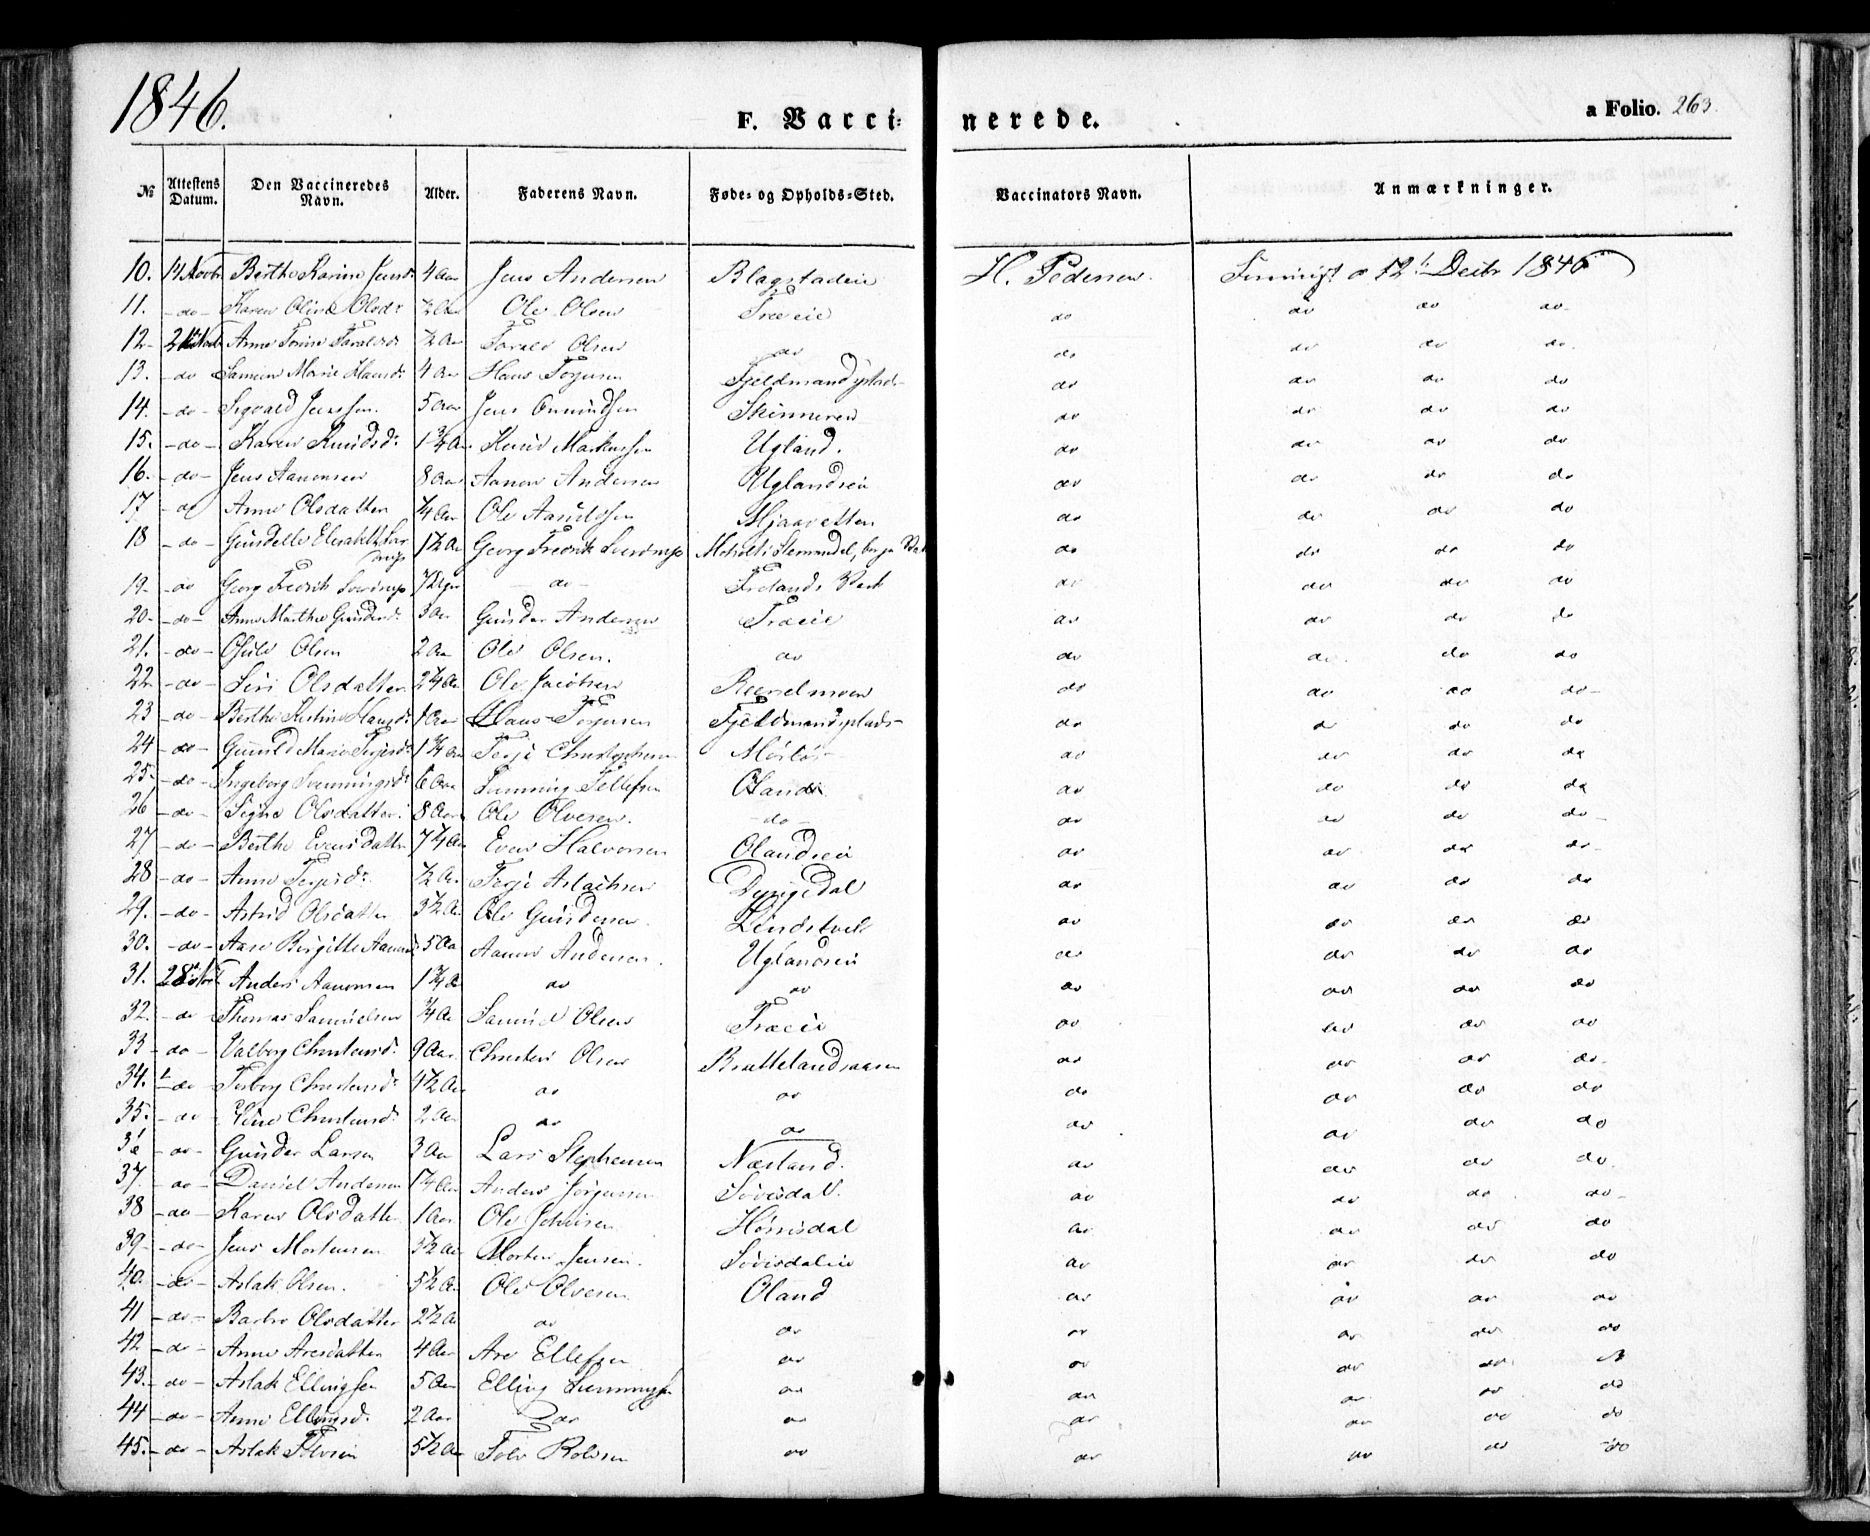 1846.
F. Vacci- nerede. a Folio. 263.
№ Attestens Datum. Den Vaccineredes Navn. Alder. Faderens Navn. Føde- og Opholds-Sted. Vaccinators Navn. Anmærkninger.
10. 14 Novbr Berthe Karine Jensd. 4 Aar Jens Andersen Blagstadeie H. Pedersen. 12t Decbr 1846
11. - do - Karen Oline Olsdr ½ Aar Ole Olsen Træeie do do do do
12 - Anne Torine Taraldsdr ½ Aar Tarald Olsen do do do do do.
13. - do Marie Hansdr 4 Aar Hans Terjesen Fjeldmandsplads do do do do
14. - do - Sigvald Jenssen. 5 Aar Jens Omundsen Skinneren do do do do
15. - do - Karen Knudsdr 1¾ Aar Knud Markussen Ugland. do do do do
16. - do - Jens Aanonsen 8 Aar Aanon Andersen Uglandseie do do do do
17 - do Anne Olsdatter ¼ Aar Ole Mjaavatten do do do do
18 - do - Gundelle Elisabeth Sverdrup 1½ Aar Georg Fredrik Sverdrup do do do do
19. - do Georg Fredrik Sverdrup - do - Frolands Værk do do do do
20. - do - Anne Marthe Gundersdr 3 Aar Gunder Andersen Træeie do do do do
21. - do - Osuld Olsen 2 Aar Ole Olsen. do do do do do
22 - do - Siri Olsdatter 2¼ Aar Ole Jacobsen do do do do -
23 - do - Berthe Kirstine Hansdr 1 Aar Hans Terjesen Fjeldmandsplads - do do do do
24 - do - Gunild Marie Terjesdr 1¾ Aar Terje Christophersen do do do do
25. - do - Ingeborg Svenningsdr 6 Aar Svenning Tellefsen Oland do do do do
26 - do - Signe Olsdatter. 8 Aar Ole Olvesen. - do - do do do do -
27 - do - Berthe Evensdatter 7¼ Aar Even Halvorsen Olandseie do do do do -
28 - do - Anne Terjesdr ½ Aar Terje Aslachsen do do do do
29. - do - Astrid Olsdatter 3½ Aar Ole Gundersen. Lindtveit do do do do
30. - do - Aase Birgitte 5 Aar Aanon Andersen. Uglandseie do do do do
31. 28 Novbr Anders Aanonsen 1¾ Aar do do do do do do
32. - do Thomas Samuelsen ¾ Aar Samuel Olsen Træeie do do do do
33 - do - Valborg Christensdr 9 Aar. Christen Olsen Brattelandsaasen do do do do.
34. - do - Torborg Christensdr 1½ Aar do do do do do do
35. - do Christensdr 2 Aar do do do do do do
36 - do - Gunder Larsen 3 Aar Lars Stephensen Næsland. do do do do.
37. - do - Daniel Andersen 1¼ Aar Anders Jørgensen Løvisdal. do do do do -
38 - do - Karen Olsdatter 1 Aar Ole Johnsen Hørrisdal do do do do
39 - do - Jens Mortensen 3½ Aar Morten Jensen. Løvisdaleie do do do do
40. - do - Aslak Olsen. 5½ Aar Ole Olvesen Oland do do do do
41 - do - Barbro Olsdatter 2½ Aar do do do do do do
42 - do - Anne Aresdatter 4 Aar Are Ellefsen do do do do
43. - do - Aslak Ellingsen 5 Aar Elling do do do do do
44 - do - Anne Ellingsd. 2 Aar do do do do do do
45. - do - Aslak 5½ Aar Tolv Rolvsen do do do do do